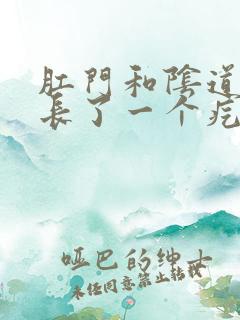 肛門和陰道
長了一个疙
哑巴的绅士
未经同意禁止转载